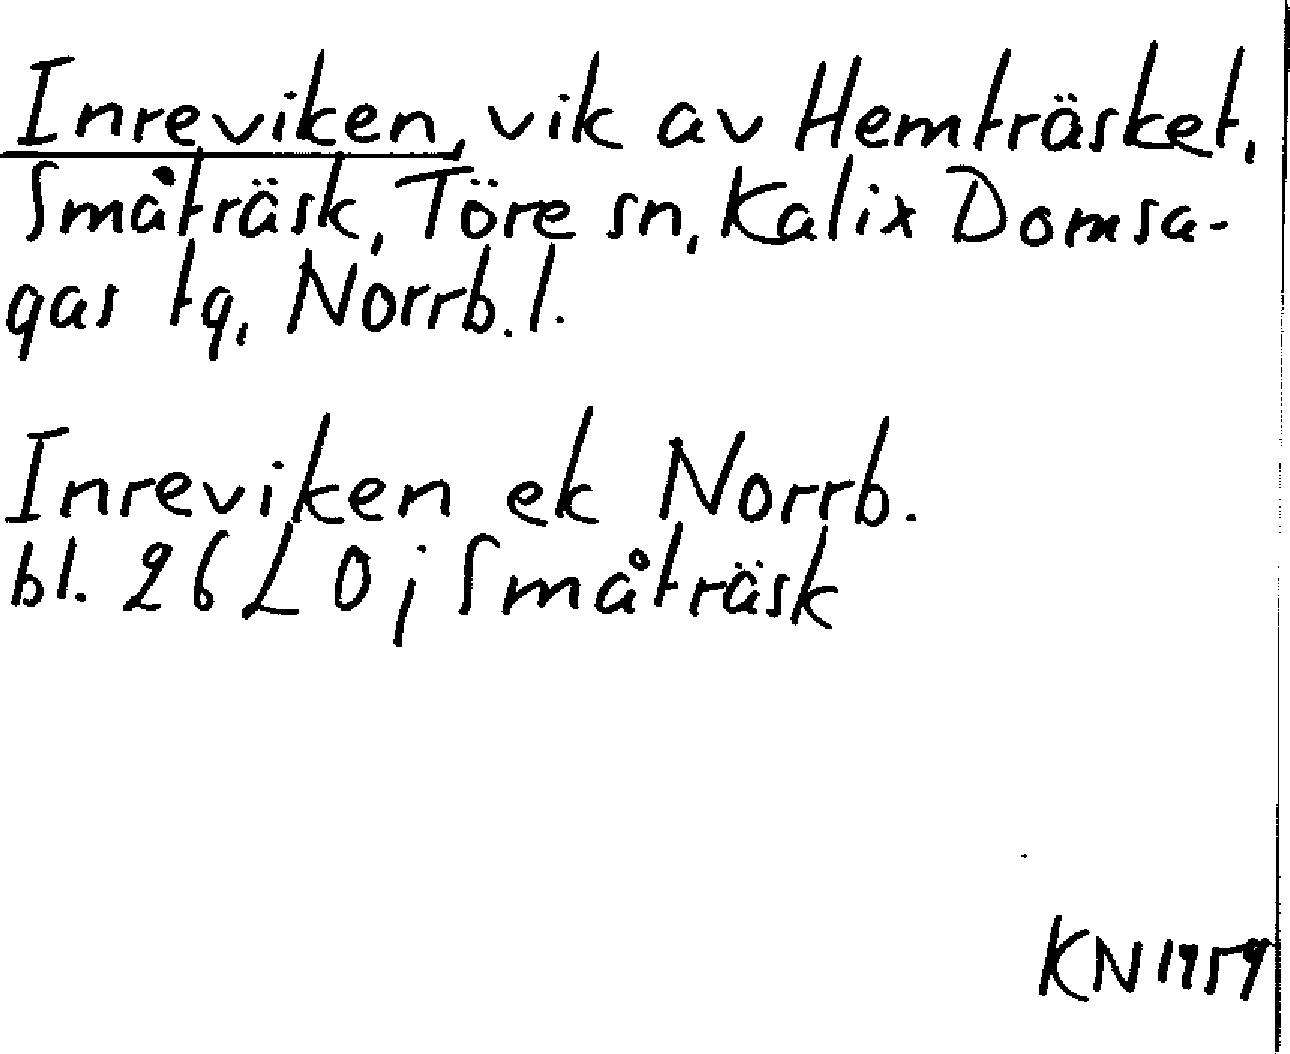 Inreviken, vik av Hemträsket,
Småträsk, Töre sn, Kalix Domsa-
gas tg, Norrb. l.
Inreviken ek Norrb.
bl. 26 L O; Småträsk
KN 1959